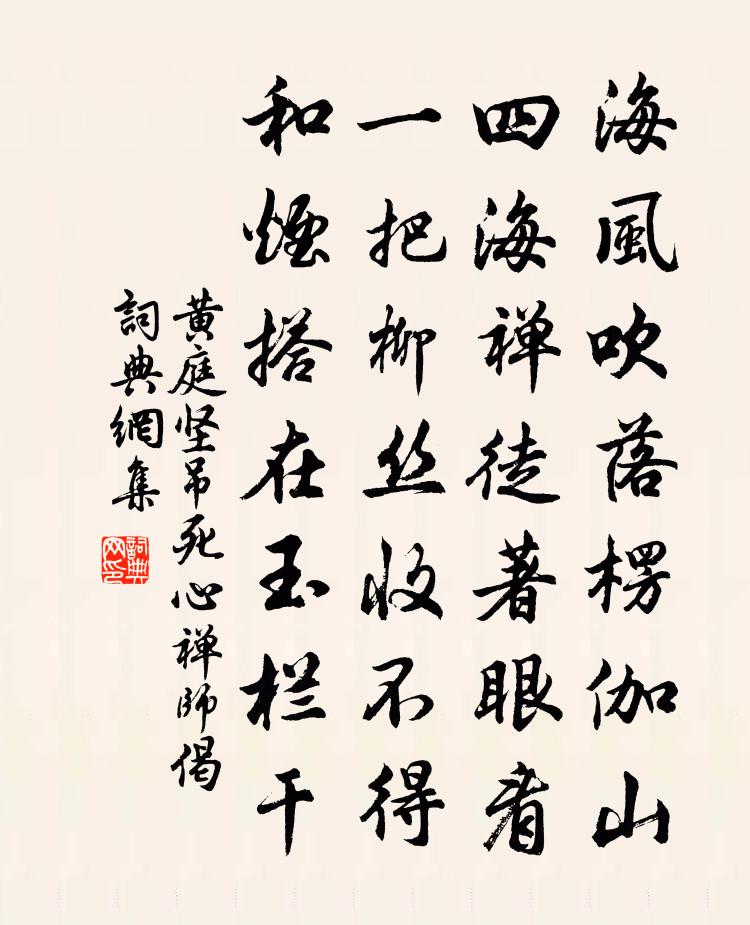 海風吹落楞伽山
四海禅徒著眼看
一把柳丝收不得
和煙搭在玉栏干
黄庭坚吊死心禅師偈
詞典網集
詞典网印